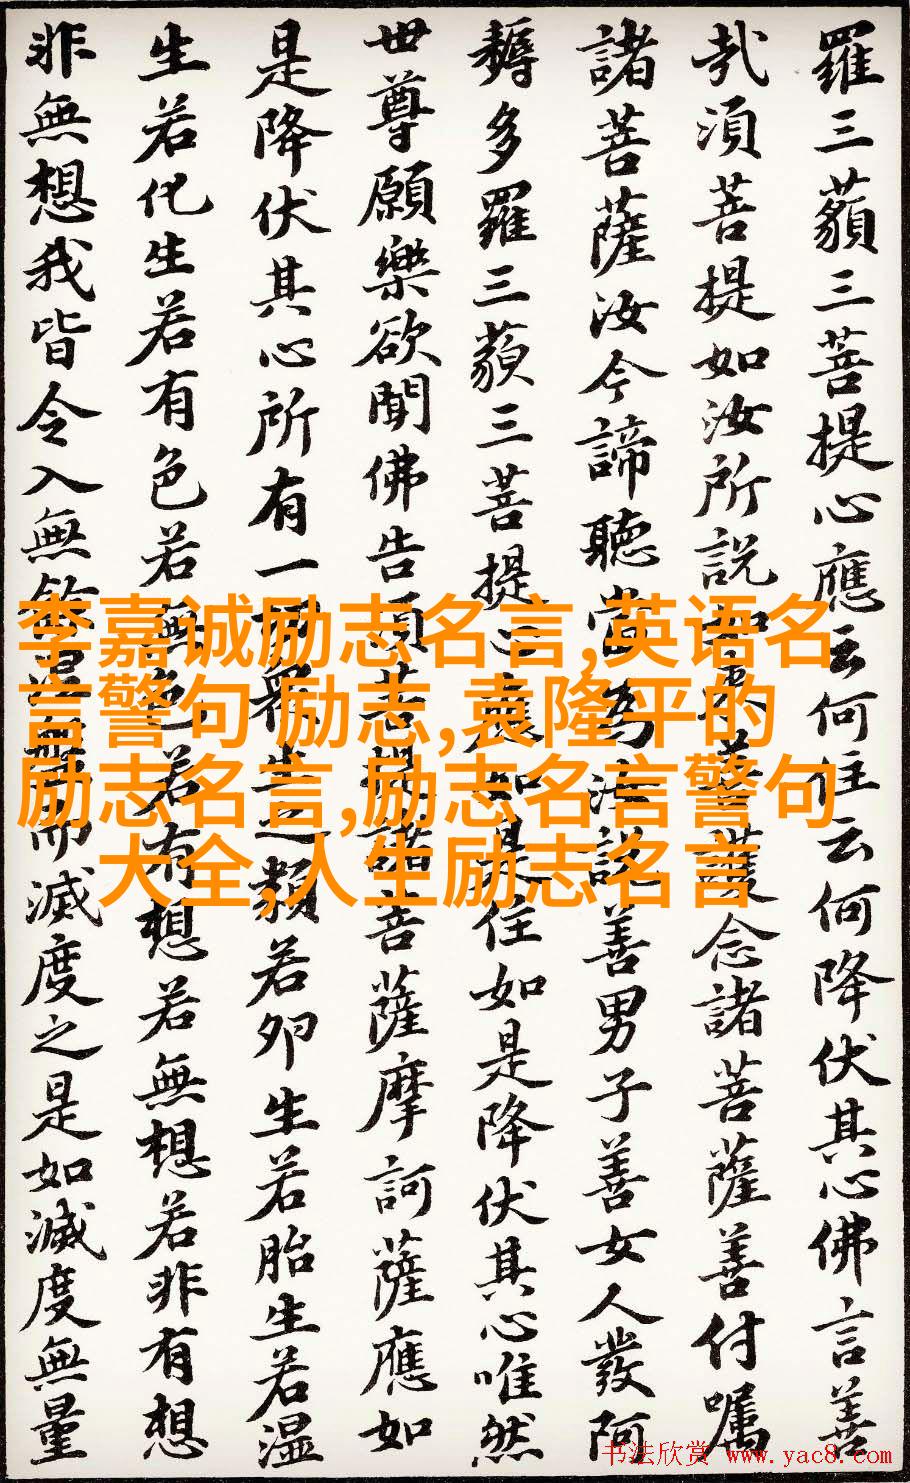 羅三藐三菩提心應云何住云何降伏其心佛言善
哉須菩提如汝所說如來善護念諸菩薩善付囑
諸菩薩汝今諦聽當為汝說善男子善女人發阿
耨多羅三藐三菩提心應如是住如是降伏其心唯然
世尊願樂欲聞佛告須菩提諸菩薩摩訶薩應如
是降伏其心所有一切眾生之類若卵生若胎生若濕
生若化生若有色若無色若有想若無想若非有想
非無想我皆令入無餘涅槃而滅度之是如滅度無量
李嘉诚励志名言,英语名
言警句 励志,袁隆平的
励志名言,励志名言警句
大全,人生励志名言
书法欣赏 www.yac8.com